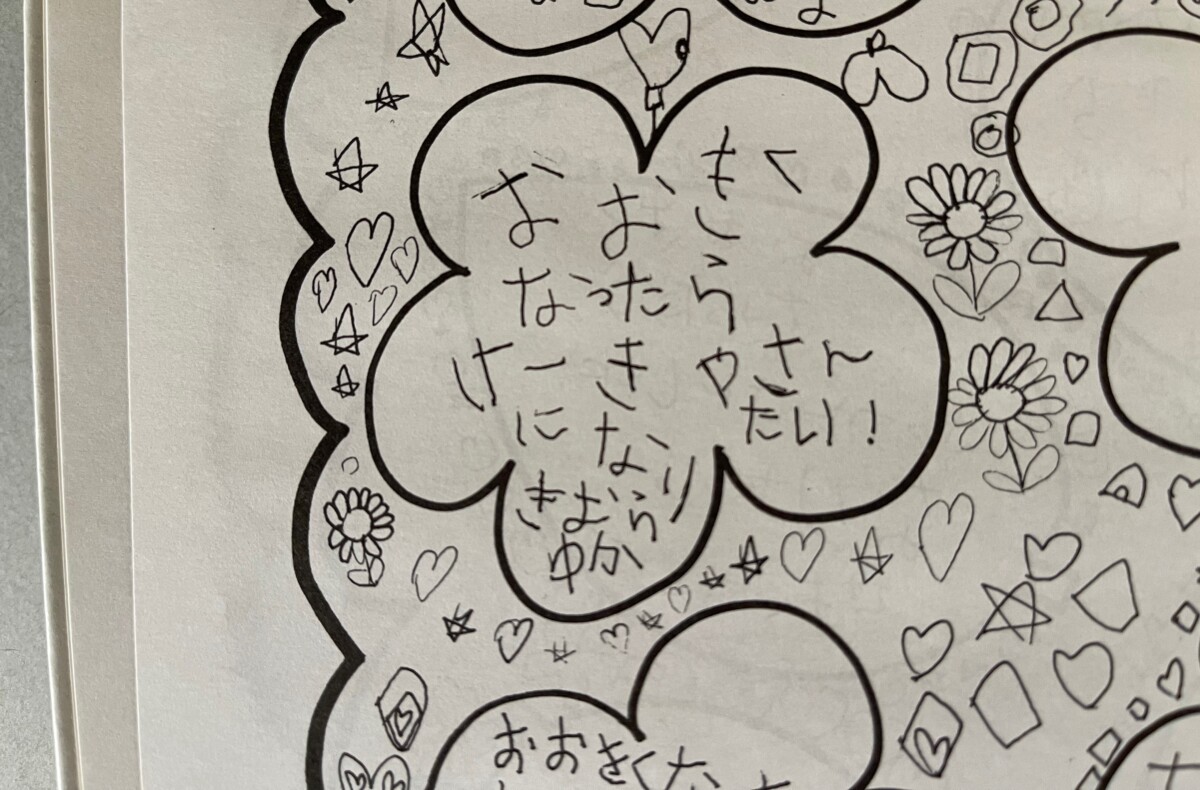 おおきく
なったら
けーきやさん
になりたい!
きよらり
ゆか
おおきくな